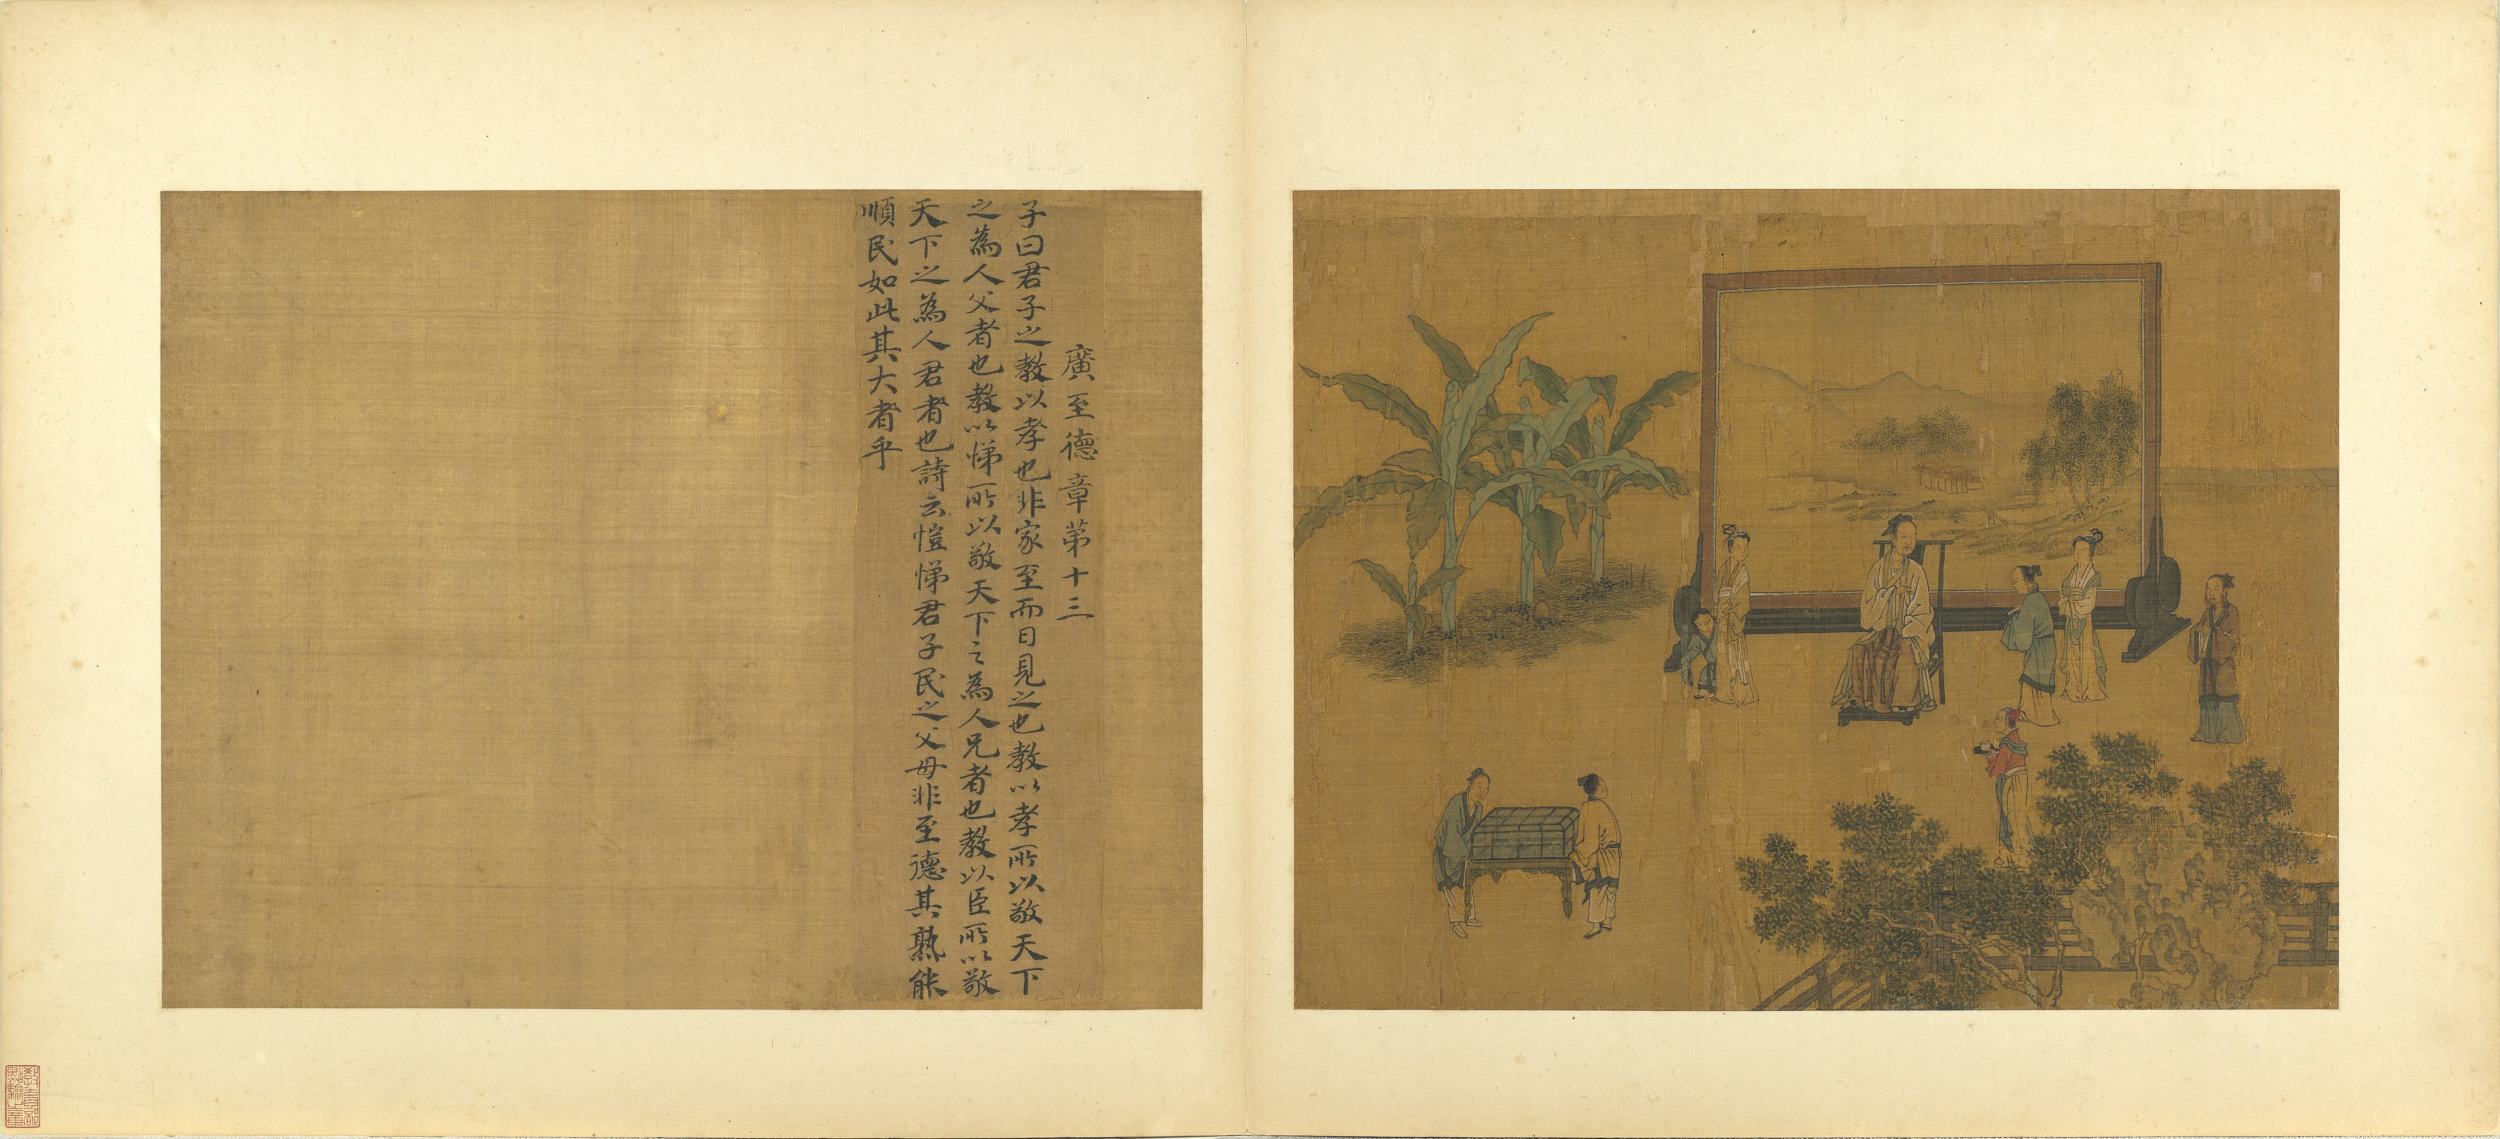 廣至德章第十三
子曰君子之教以孝也非家至而日見之也教以孝所以敬天下
之為人父者也教以悌所以敬天下之為人兄者也教以臣所以敬
天下之為人君者也詩云愷悌君子民之父母非至德其熟能
順民如此其大者乎